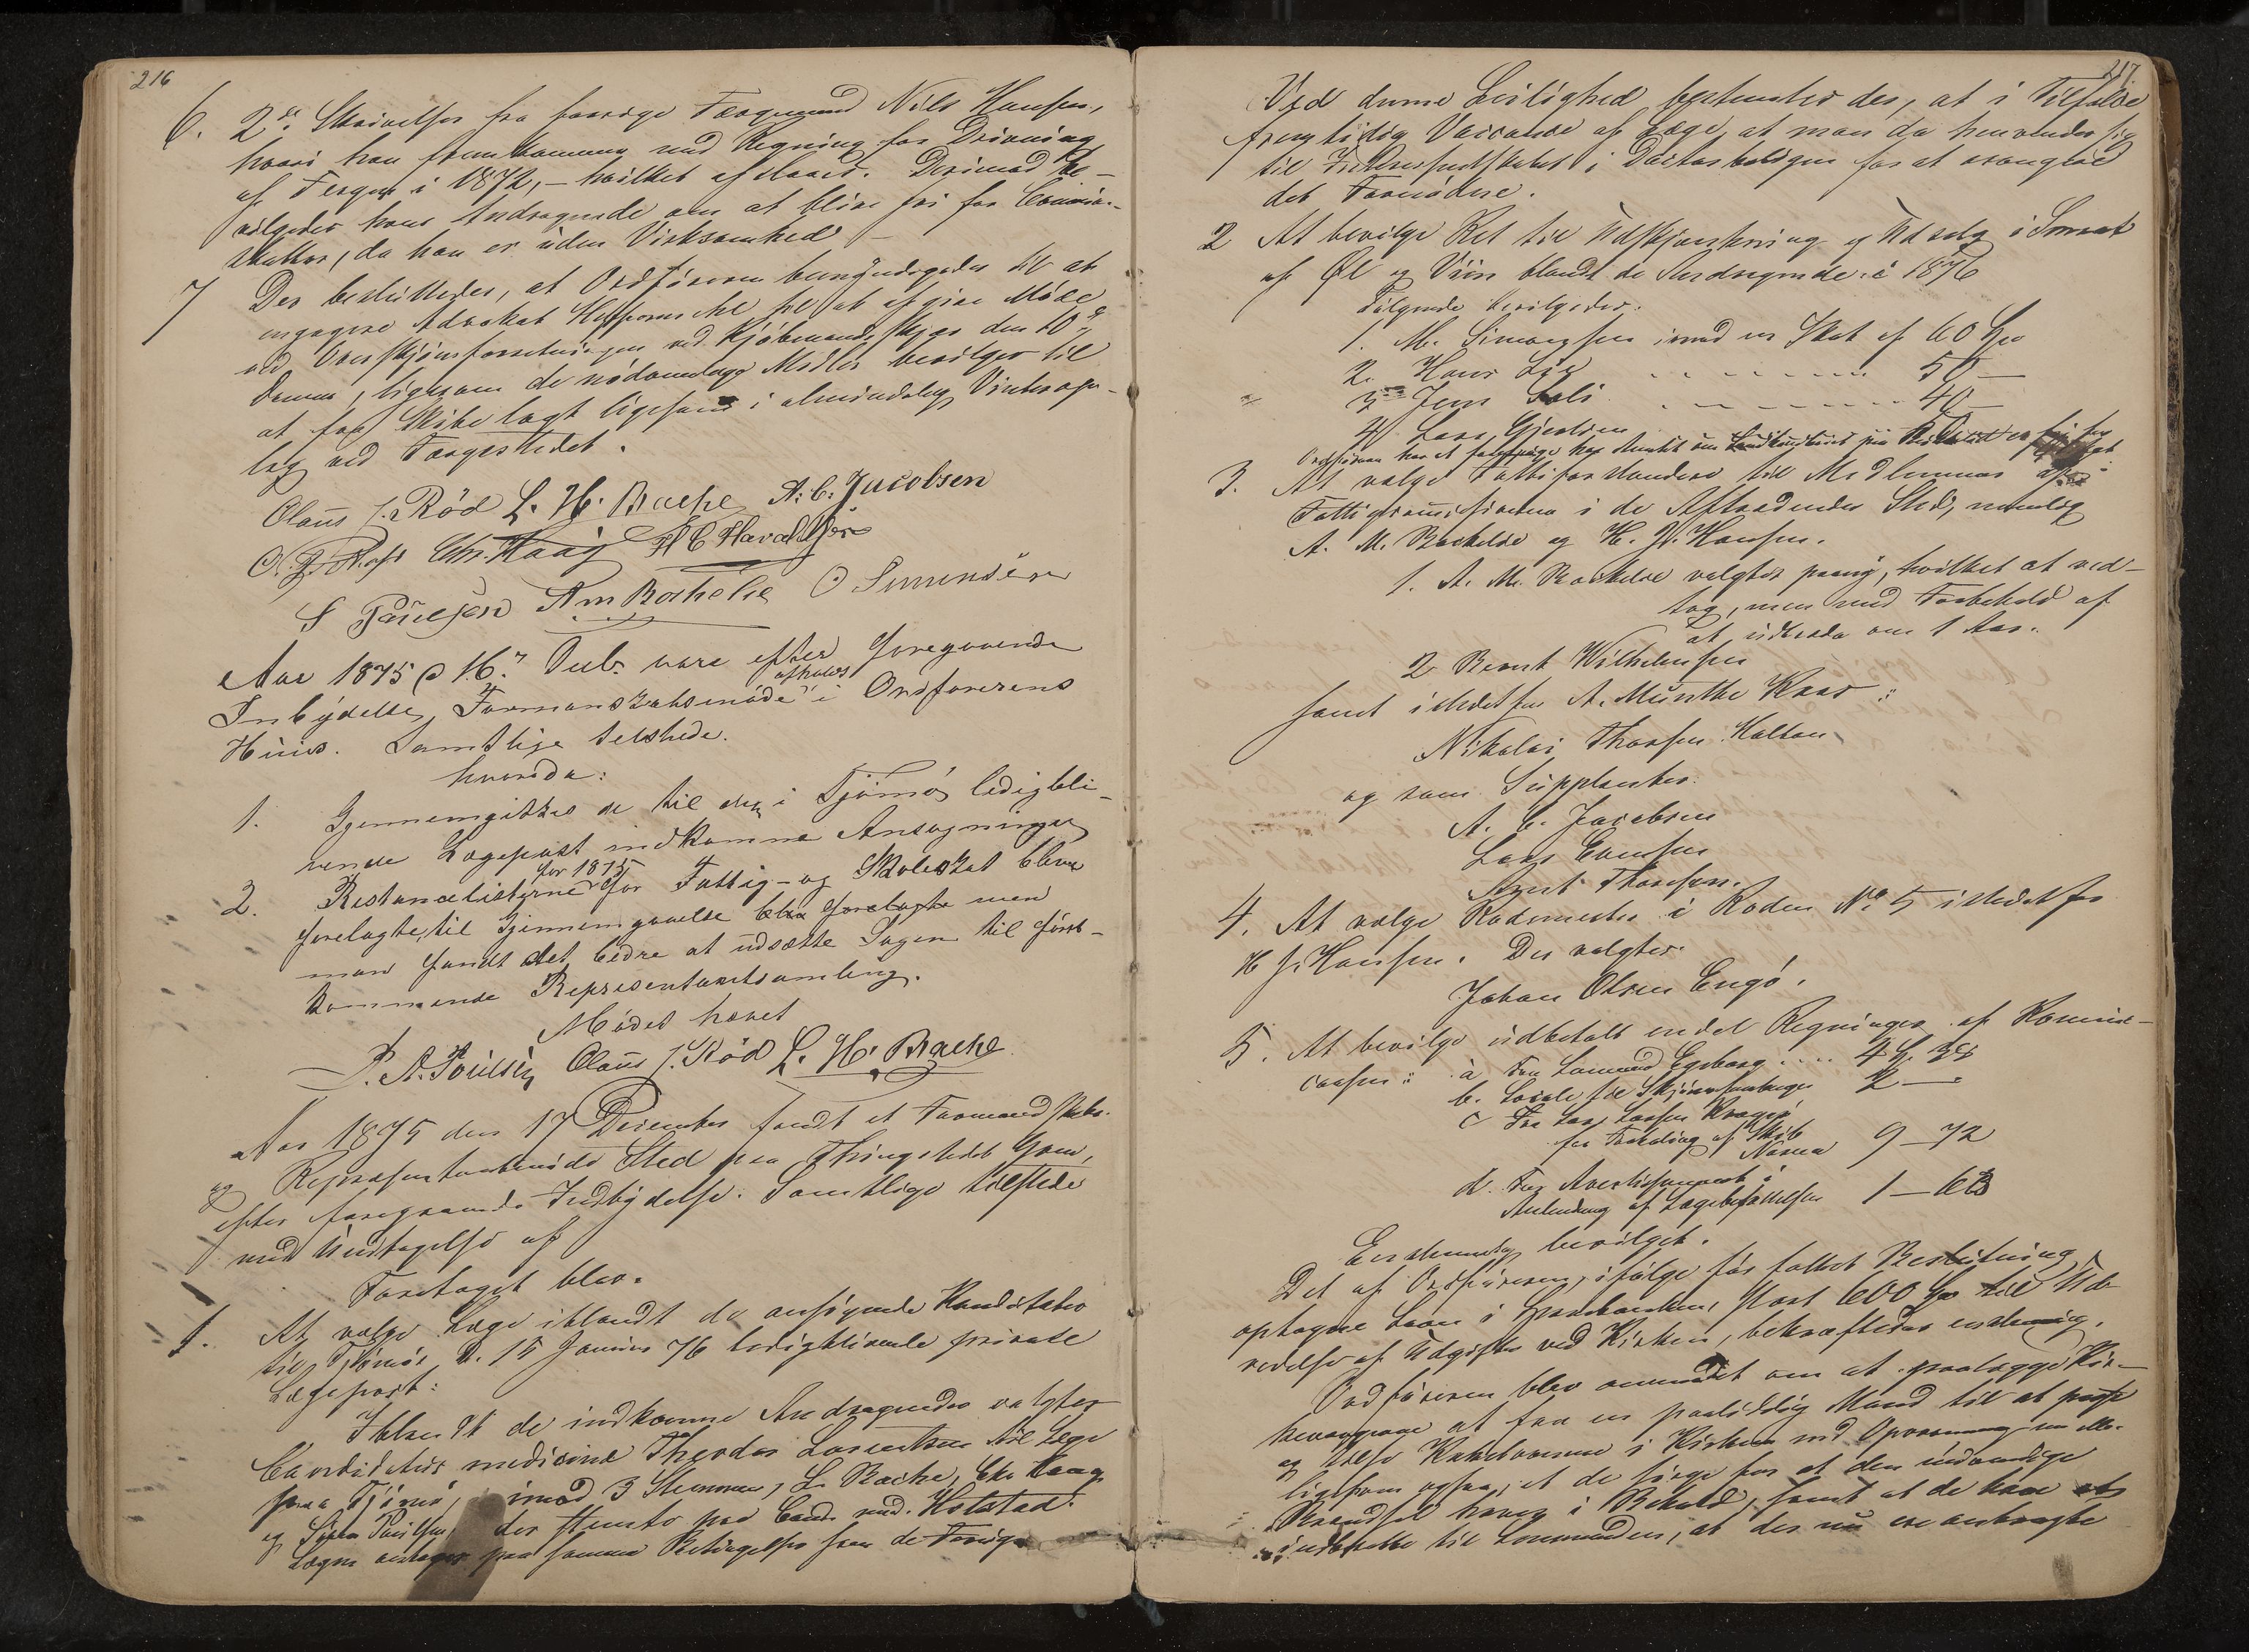 216
6. 2de Skrivelser fra forrige Færgemand Nils Hansen,
hvori han fremkommer med Regning for Drivning
af Fergen i 1872, – hvilket afslaaes. Derimod be-
vilgedes hans Andragende om at blive fri for Commune-
skatter, da han er uden Virksomhed –
7 Der besluttedes, at Ordføreren bemyndigedes til at
engagere Advokat til at afgive Møde
ved Overskjønsforretningen ved Kjøbmandsskjær den 10de
Dennes, ligesom de nødvendige Midler bevilges til
at faa Skibe lagt ligesom i almindelig Vinteropn-
lag ved Færgestedet.
Olaus J. Rød L. H. Bache A. C. Jacobsen
Chr. Haag H C Haraldsen
S Poulsen A M Bachelse O Simensen
Aar 1875 d 16de Decbr. vare efter foregaaende
Indbydelse Formanskabsmøde afholdt i Ordførerens
Huus. Samtlige telstede.
hvorda:
1. Gjennemgikkes de til den i Tjømø ledigbli-
vende Lægepost indkomne Ansøgninger
2. Restancelisterne for 1875 for Fattig- og Skoleskat bleve
forelagte, til Gjennemgaaelse blev forelagte men
man fandt det bedre at udsætte Sagen til først-
kommende Representantsamling.
Mødet hævet
P. A. Poulsen Olaus J. Rød L. H. Bache
Aar 1875 den 17 December fandt et Formandskabs-
og Repræsentantmøde Sted paa Thingstedet Grev,
efter foregaaende Indbydelse. Samtlige tilstede
med Undtagelse af
Foretaget blev.
1. At vælge Læge iblandt de ansøgende Kandidater
til Tjømøe d. 15 Januar 76 ledigblivende private
Lægepost:
Iblandt de indkomne Andragender valgtes
Candidatus medicinæ Theodor Laurentsen til Læge
paa Tjømø, imod 3 Stemmer, L. Bache, Chr Haag
og Søren Poulsen der stemte paa Cand. med. Holstad.
Lægen antages paa samme Betingelser som de Forrige
217.
Ved denne Leilighed bestemtes der, at i Tilfælde
fremtidig Vaccance af Læge, at man da henvender sig
til i Doctorboligen for at arangere
det Fornødne.
2 At bevilge Ret til Udskjænkning og Udsalg i Smaat
af Øl og Viin blandt de Andragende i 1876
Følgende bevilgedes:
1. M. Simonsen imod en Skat af 60 Kr
2. Hans Lie - - - - - - 50 —
3 Jens Sole - - - - - - 40 —
4 Lars Gjertsen
3. At vælge Fattigforstandere til Medlemmer af
Fattigcommisionen i de Aftrædendes Sted, nemlig
A. M. Bachelse og H. J. Hansen.
1. A. M. Bachelse valgtes paany, hvilket at ved-
tog, men med Forbehold af
at udtræde om 1 Aar.
2 Bernt Wilhelmsen
samt istedetfor A. Münthe Kaas:
Nikolai Thorsen Kalton
og som Supplanter
A. C. Jacobsen
Lars Evensen
Thorsen.
4. At vælge Rodemester i Roden No 5 istedetfor
H J. Hansen. Der valgtes
Johan Olsen Engø.
5. At bevilge udbetalt endel Regninger af Komune-
cassen: a Fru Lomund Egeberg .... 4
b. Locale til Skjønsforretninger 2 —
c Fra Lars Larsen Kragsø
for Fordeling af Skib
Norma 9 — 72
d. For Avertissement i
Anledning af Lægebesættelsen 1 — 63
Eenstemmig bevilget.
Det af Ordføreren, ifølge før fattet Beslutning
optagne Laan i Sparebanken, stort 600 Kr til Ud-
redelse af Udgifter ved Kirken, bekræftedes enstemmig.
Ordføreren blev anmodet om at paalægge Kir-
keværgerne at faa en paalidelig Mand til at passe
og stelle Kakelovnene i Kirken ved Opvarmning
ligesom ogsaa, at de sørge for at den nødvendige
Brændsel haves i Behold, samt at de have at
indberette til Communen, at der nu ere anbragte